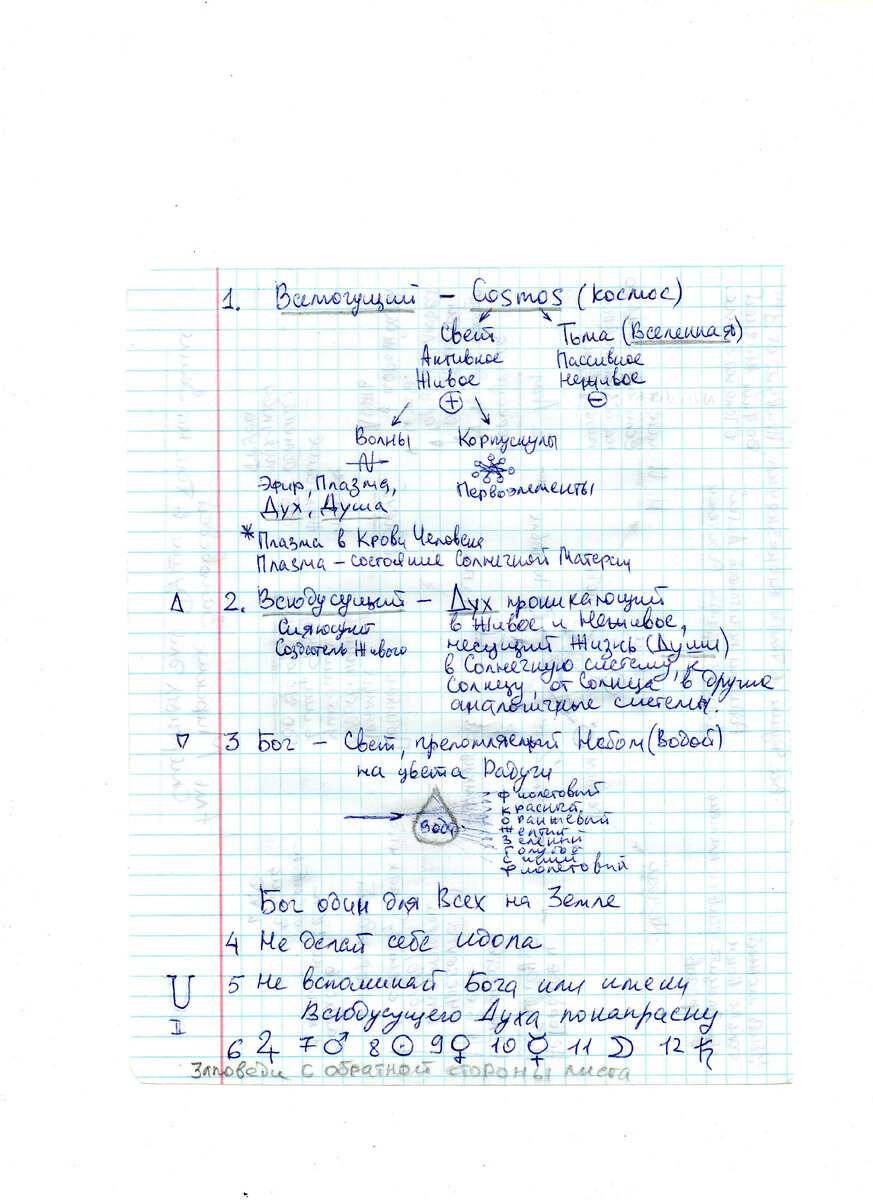 1. Всемогущий – Cosmos (космос)
Свет Тьма (Вселенная)
Активное Пассивное
Живое Неживое
+ –
Волны Корпускулы
Эфир, Плазма, Первоэлементы
Дух, Душа
* Плазма в Крови Человека
Плазма – состояние Солнечной Материи
△ 2. Всюдусущий – Дух проникающий
Сияющий в Живое и Неживое,
Создатель Живого несущий Жизнь (Души)
в Солнечную систему, к
Солнцу, от Солнца в другие
аналогичные системы.
▽ 3 Бог – Свет, преломляемый Небом (Водой)
на цвета Радуги
фиолетовый
красный
оранжевый
Вода желтый
зеленый
голубое
синий
фиолетовый
Бог один для Всех на Земле
4 Не делай себе идола
5 Не вспоминай Бога или имени
Всюдусущего Духа понапрасну
6 ♃ 7 ♂ 8 ☉ 9 ♀ 10 ☿ 11 ☽ 12 ♄
Заповеди с обратной стороны листа